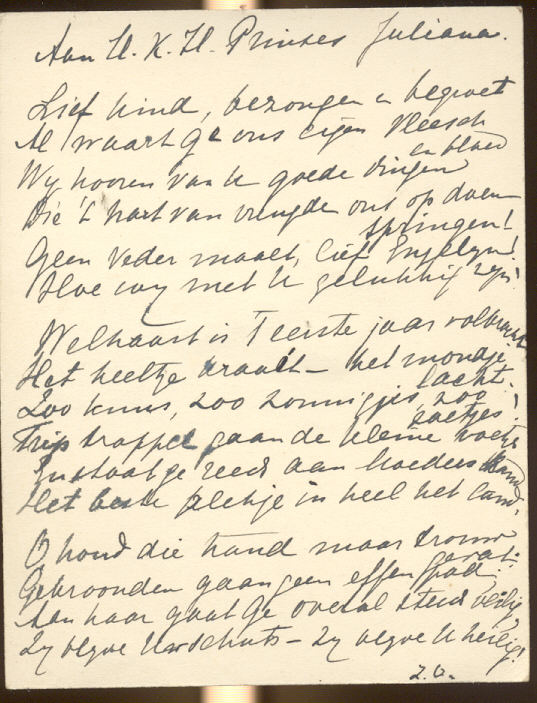 Aan H. K. H. Prinses Juliana.
Lief kind, bezongen en begroet
Al waart Ge ons eigen vleesch
en bloed
Wy hooren van U goede dingen
Die 't hart van vreugde ons op doen
springen!
Geen veder maalt, lief Engelyn!
Hoe wy met U gelukkig zyn!
Welhaast is 't eerste jaar volbracht
Het keeltje kraait – het mondje
lacht.
Zoo kuns, zoo zonnigjes, zoo
zoetjes!
Trip trappel gaan de kleine voetjes
En staat ge reeds aan Moeders hand
Het beste plekje in heel het land.
O houd die hand maar trouw
gevat:
Gekroonden gaan geen effen pad,
Aan haar gaat Ge overal steeds veilig,
Zy blyve Uw Schuts – Zy blyve U heilig!